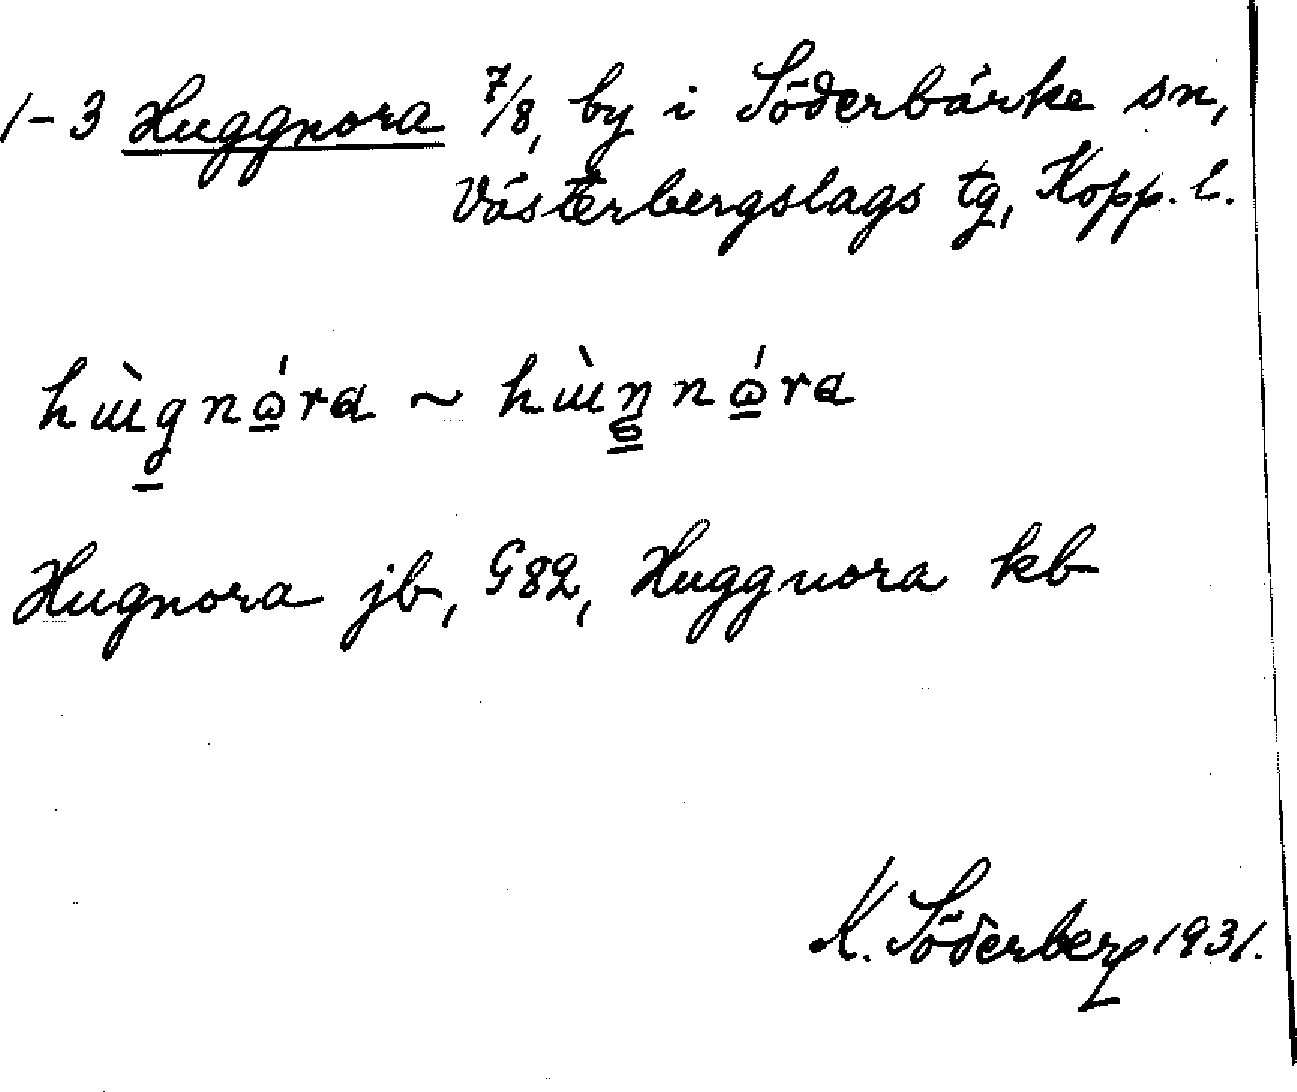 1-3 Huggnora 7/8, by i Söderbärke sn,
Västerbergslags tg, Kopp. l.
hɯ̀gnǫ́ra ~ hɯ̀ŋnǫ́ra
Hugnora jb, G82, Huggnora kb
K. Söderberg 1931.